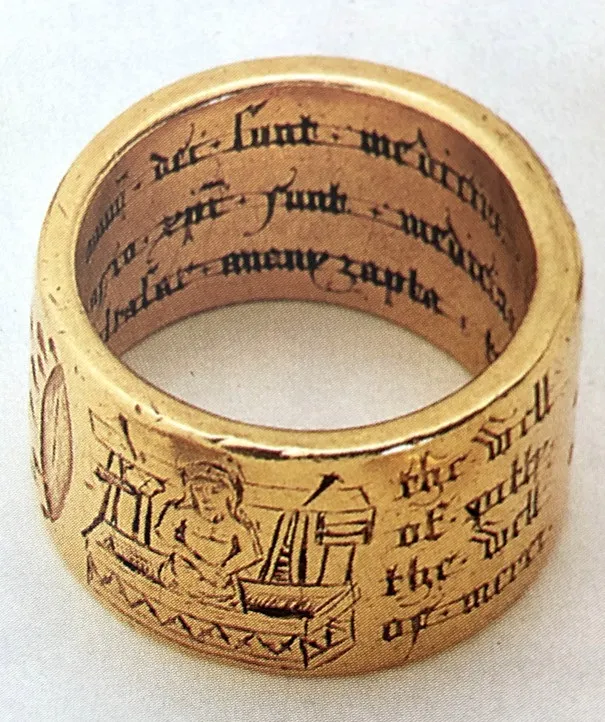 dei · sunt · medicina
xpi · sunt · medicina
ananyzapta ·
the well
of · pitty ·
the well
of · merci ·